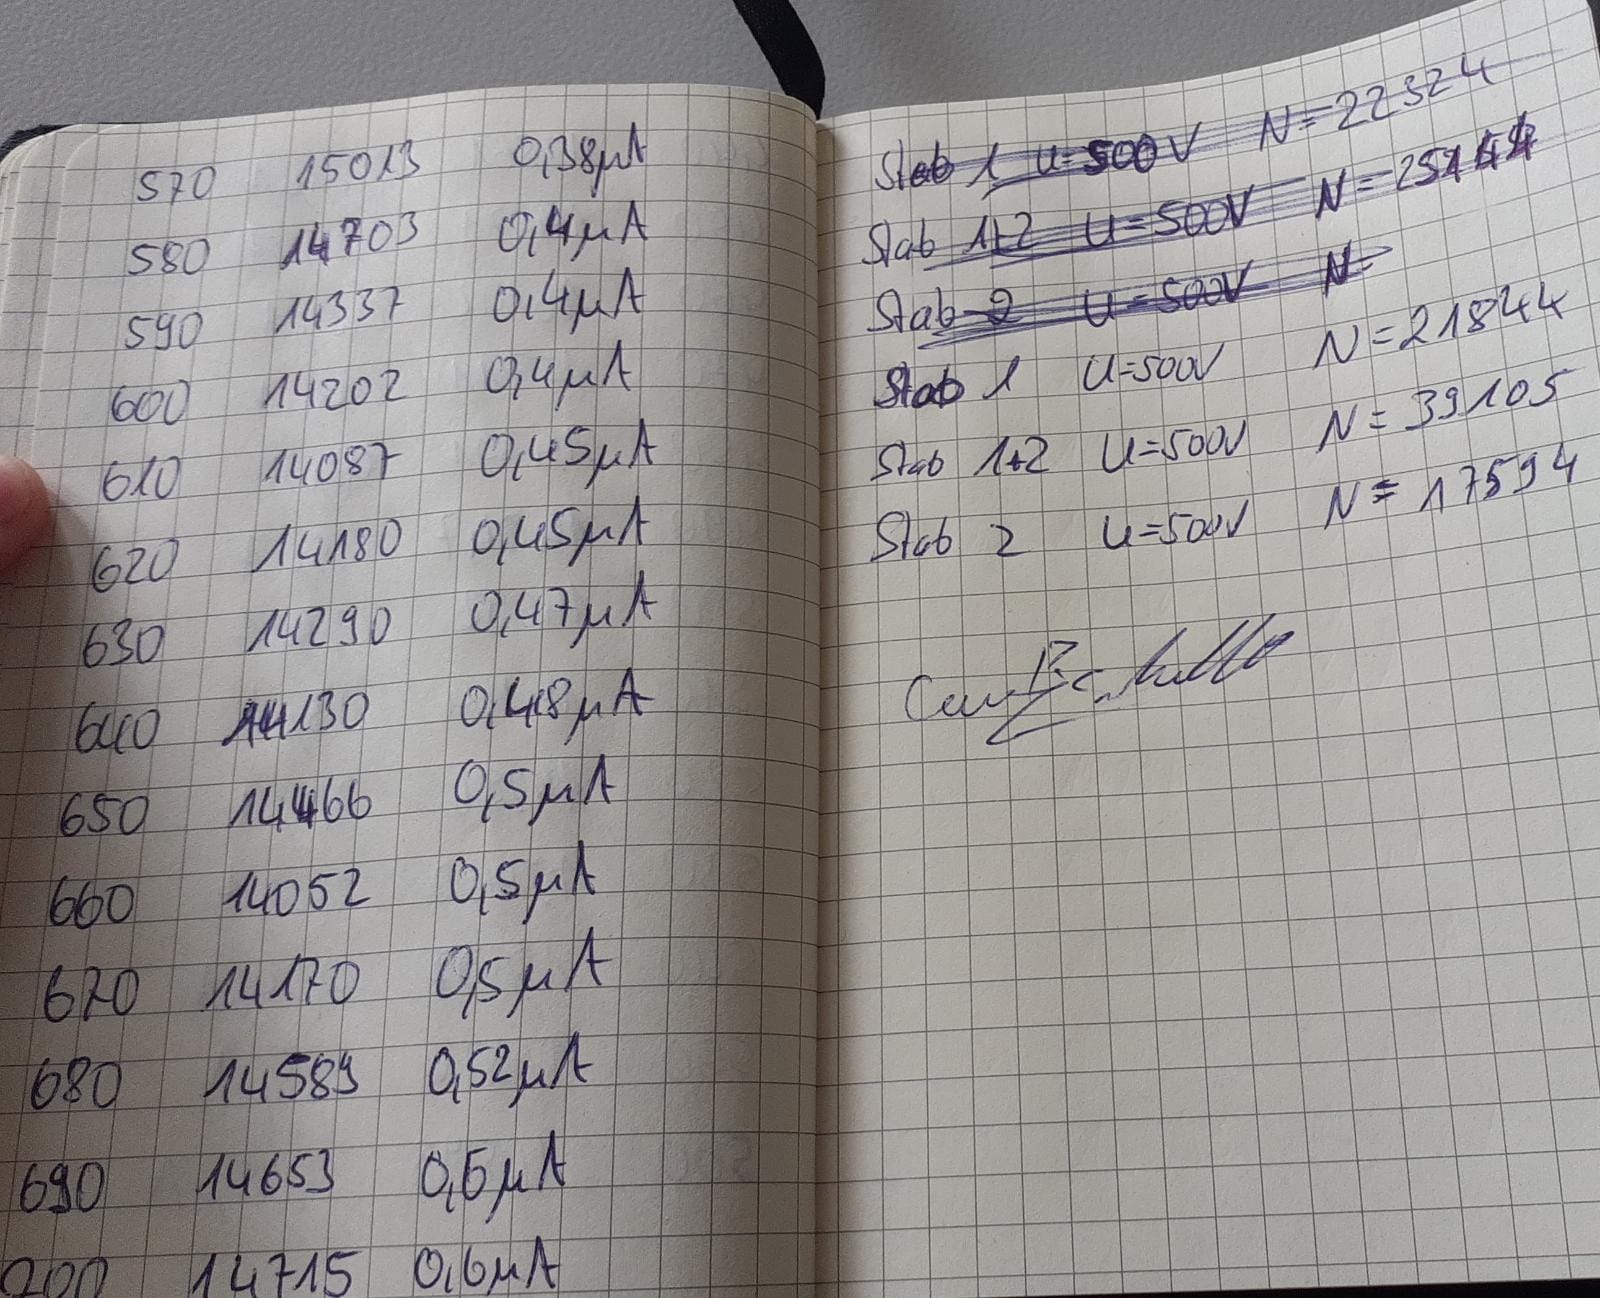 570 15013 0,38µA
580 14703 0,4µA
590 14337 0,4µA
600 14202 0,4µA
610 14087 0,45µA
620 14180 0,45µA
630 14290 0,47µA
640 14130 0,48µA
650 14466 0,5µA
660 14052 0,5µA
670 14170 0,5µA
680 14589 0,52µA
690 14653 0,6µA
700 14715 0,6µA
Stab 1 U=500V N=22324
Stab 1+2 U=500V N=25144
Stab 2 U=500V N=
Stab 1 U=500V N=21844
Stab 1+2 U=500V N=39105
Stab 2 U=500V N=17594